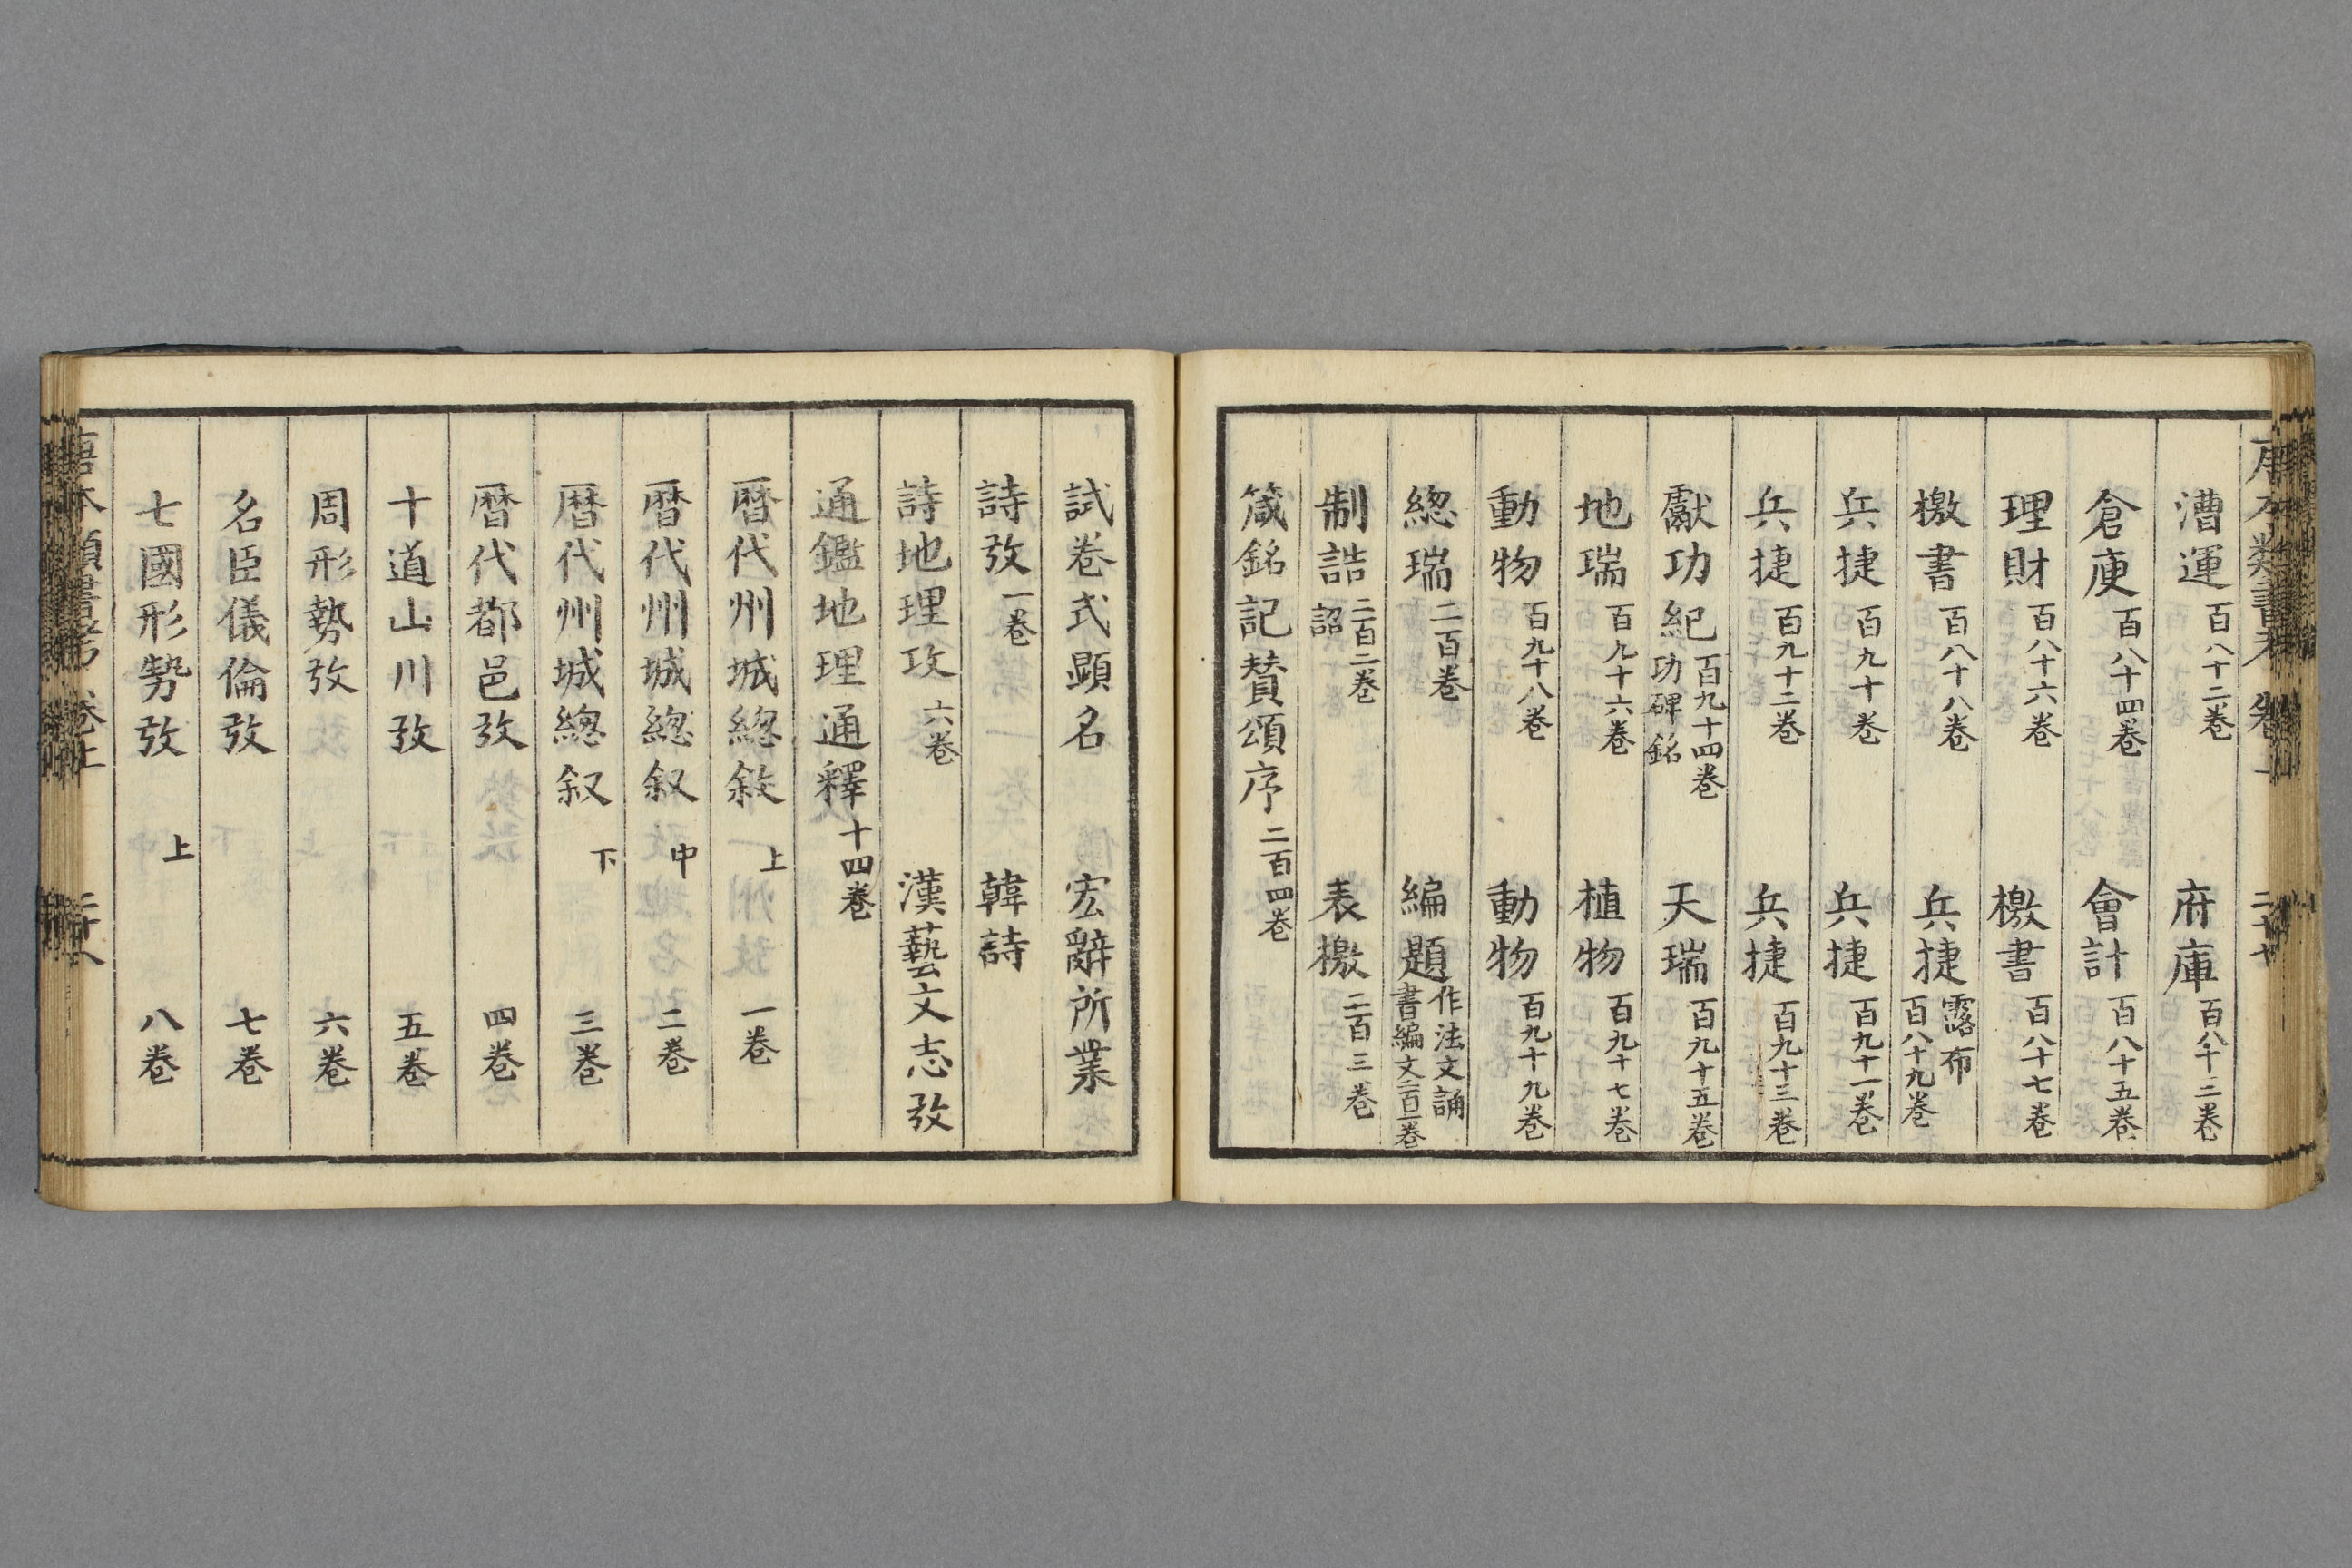 漕運 百八十二巻 府庫 百八十三巻
倉庾 百八十四巻 會計 百八十五巻
理財 百八十六巻 檄書 百八十七巻
檄書 百八十八巻 兵捷 露布 百八十九巻
兵捷 百九十巻 兵捷 百九十一巻
兵捷 百九十二巻 兵捷 百九十三巻
獻功紀 百九十四巻 功碑銘 天瑞 百九十五巻
地瑞 百九十六巻 植物 百九十七巻
動物 百九十八巻 動物 百九十九巻
總瑞 二百巻 編題 作法文誦 書編文二百一巻
制誥 二百二巻 詔 表檄 二百三巻
箴銘記賛頌序 二百四巻
試巻式顕名 宏辭所業
詩攷 一巻 韓詩
詩地理攻 六巻 漢藝文志攷
通鑑地理通釋 十四巻
暦代州城總敘 上 一巻
暦代州城總叙 中 二巻
暦代州城總叙 下 三巻
暦代都邑攷 四巻
十道山川攷 五巻
周形勢攷 六巻
名臣儀倫攷 七巻
七國形勢攷 上 八巻
唐本類書考 巻上 二十八